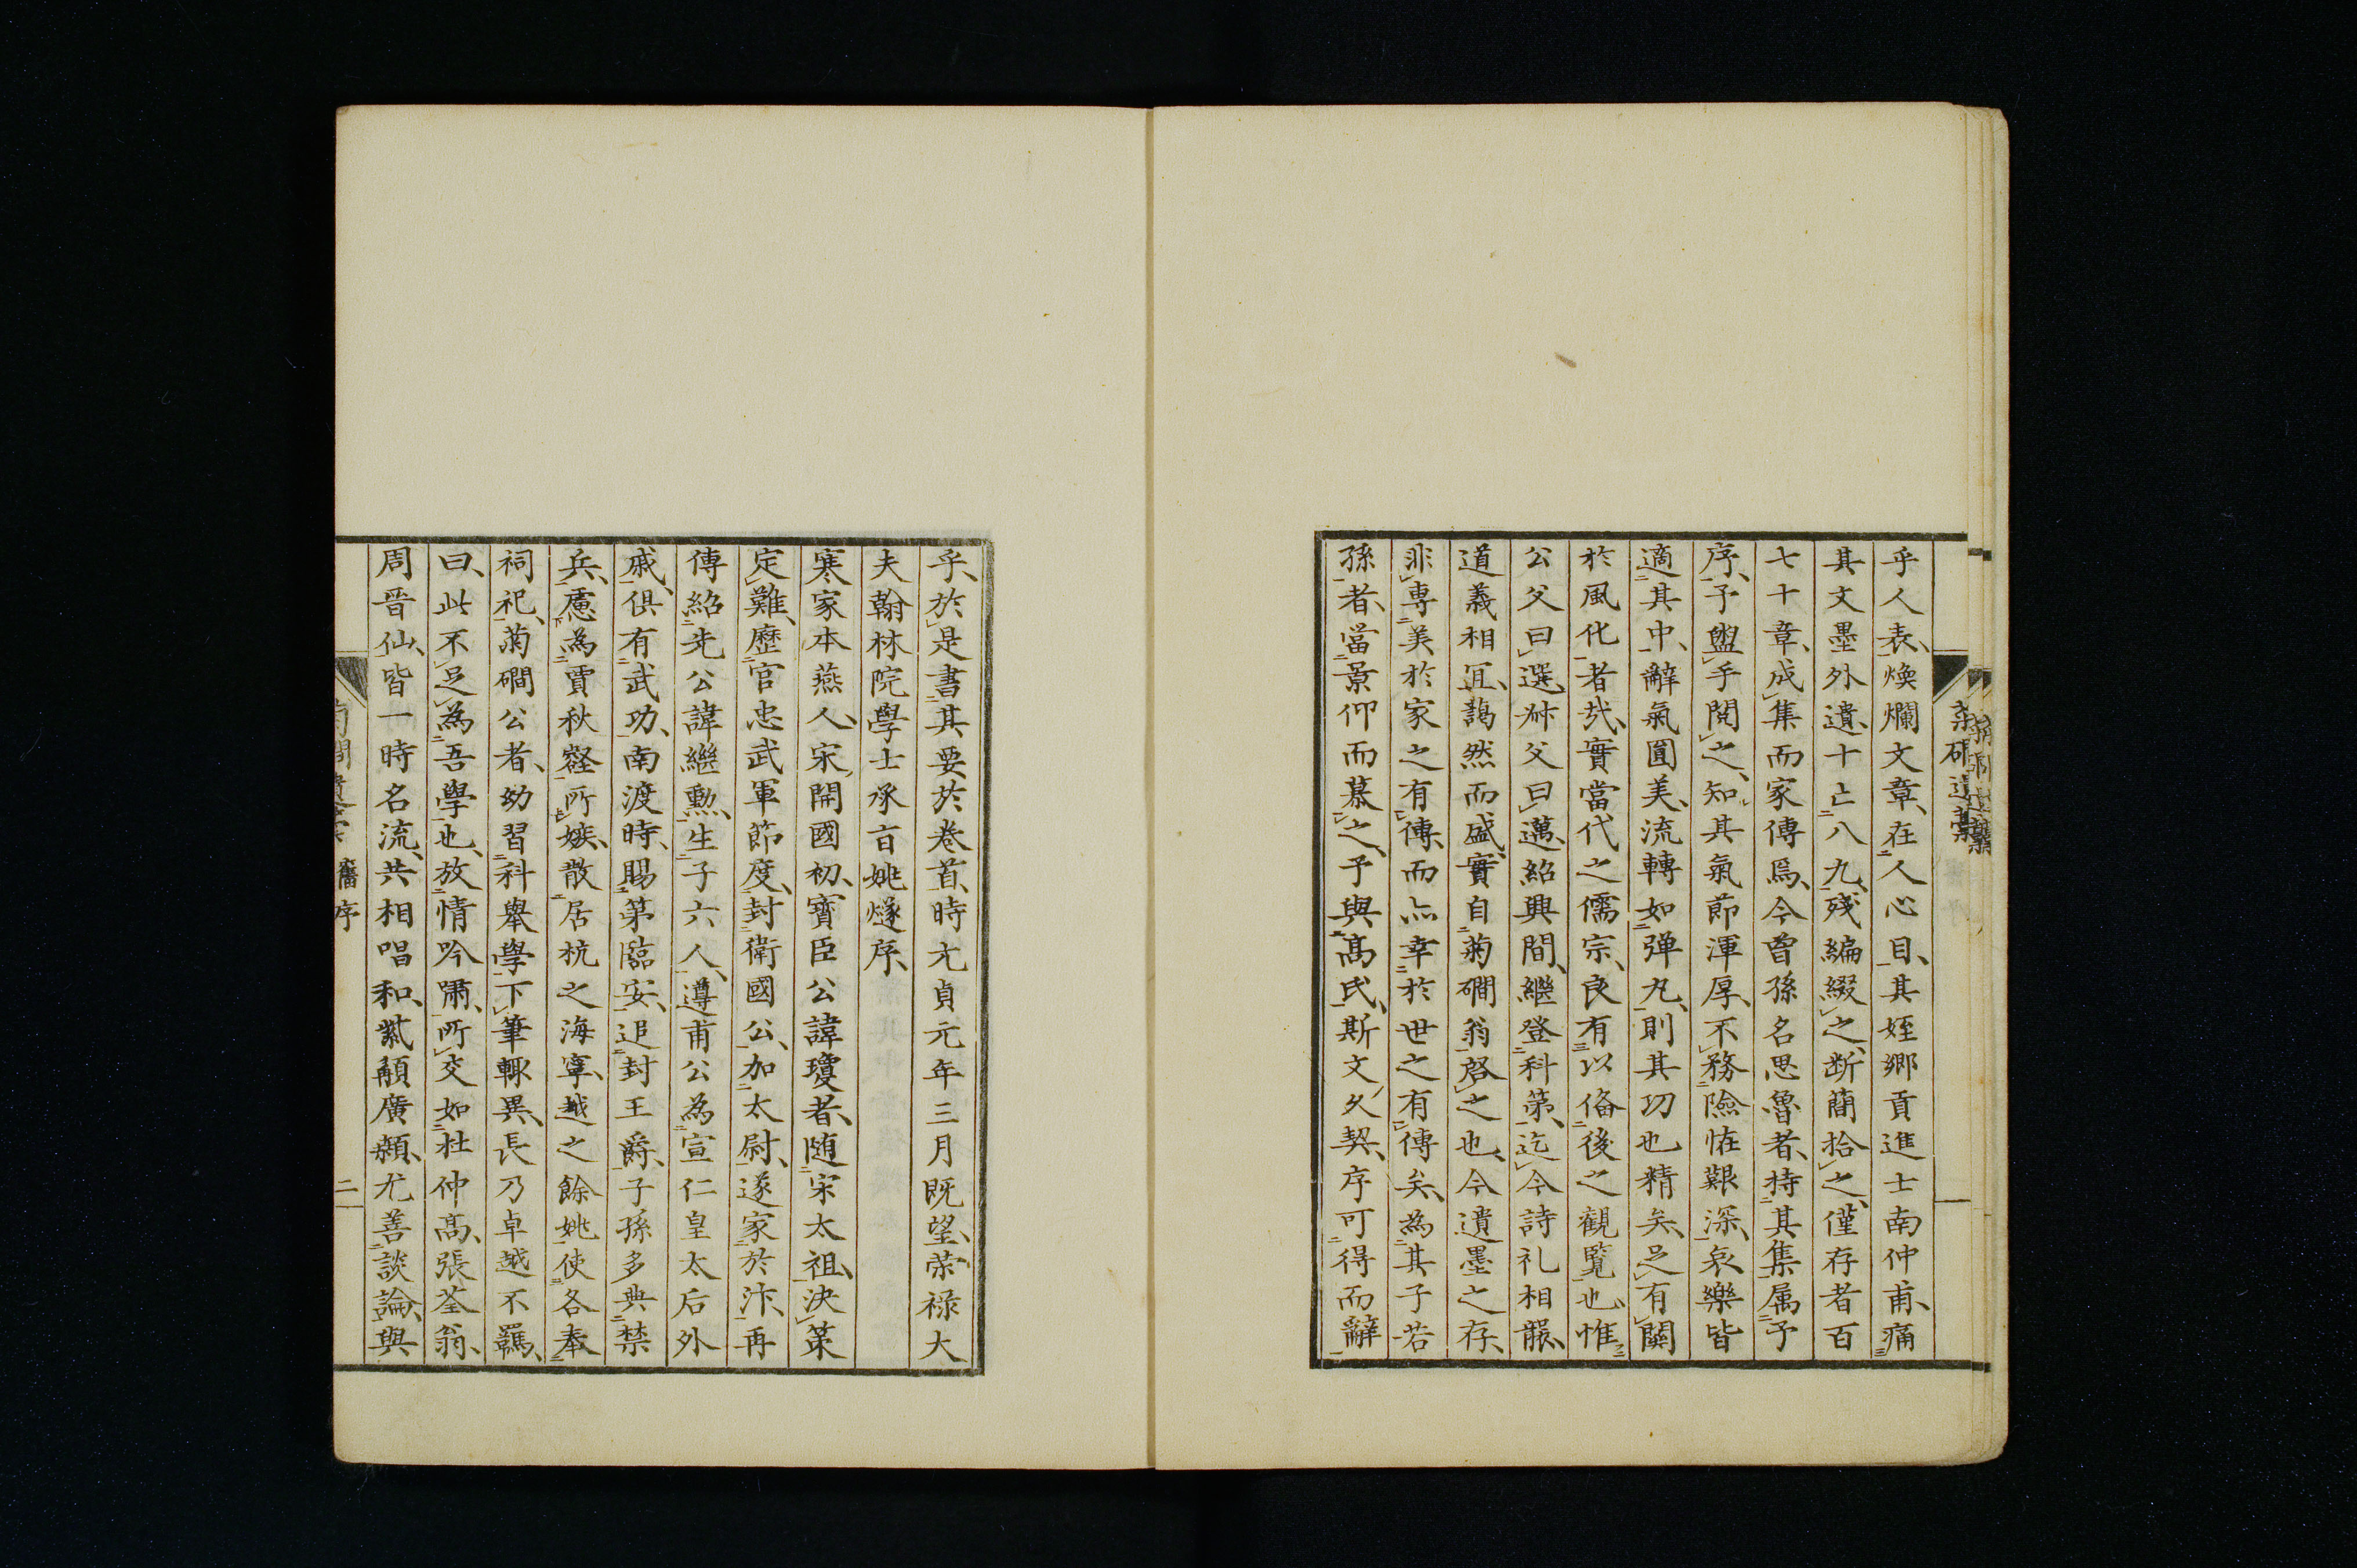 乎人表煥爛文章在人心目其姪鄉貢進士南仲甫痛
其文墨外遺十亡八九殘編綴之断簡拾之僅存者百
七十章成集而家傳焉今曾孫名思魯者持其集属予
序予盥手閱之知其氣節渾厚不務險怪艱深哀樂皆
適其中辭氣圓美流轉如弹丸則其功也精矣足有關
於風化者㢤實當代之儒宗良有以俻後之觀覧也惟
公父曰選叔父曰邁紹興間繼登科第迄今詩礼相襲
道義相冝藹然而盛實自菊磵翁啓之也今遺墨之存
非專美於家之有傳而亦幸於世之有傳矣為其子若
孫者當景仰而慕之予與髙氏斯文久契序可得而辭
乎於是書其要於巻首時元貞元年三月既望荣禄大
夫翰林院學士承㫖姚燧序
寒家本燕人宋開國初寳臣公諱瓊者随宋太祖決策
定難歷官忠武軍節度封衛國公加太尉遂家於汴再
傳紹先公諱繼勲生子六人遵甫公為宣仁皇太后外
戚俱有武功南渡時賜第臨安追封王爵子孫多典禁
兵慮為賈秋壑所嫉散居杭之海寧越之餘姚使各奉
祠祀菊磵公者幼習科舉學下筆輙異長乃卓越不羈
曰此不足為吾學也放情吟嘯所交如杜仲髙張荃翁
周晋仙皆一時名流共相唱和紫髯廣顙尤善談論與
舊序
二